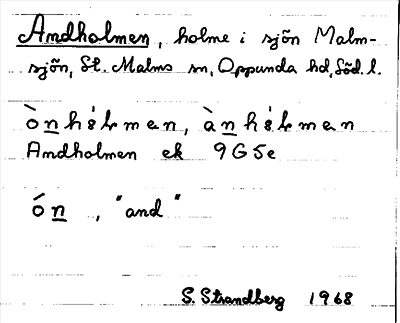 Andholmen, holme i sjön Malm-
sjön, St. Malms sn, Oppunda hd, Söd. l.
Andholmen ek 9G5e
ón, "and"
S. Strandberg 1968